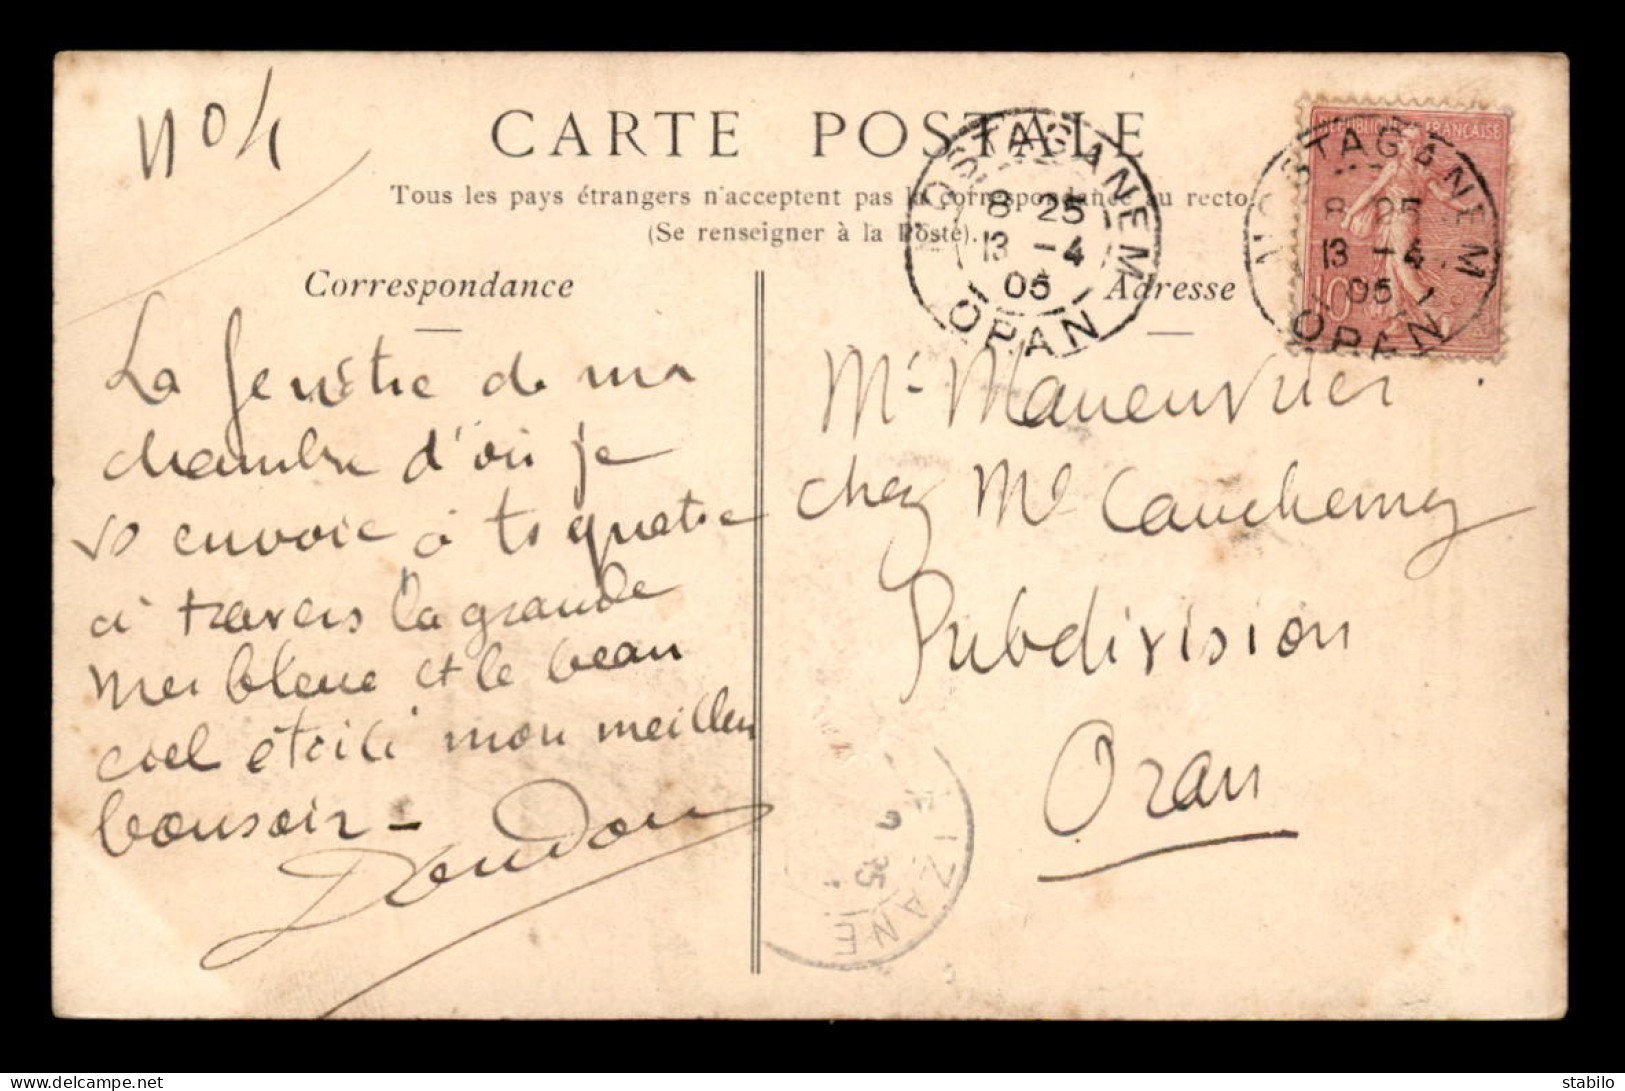 N° 4
CARTE POSTALE
Tous les pays étrangers n'acceptent pas la correspondance au recto.
(Se renseigner à la Poste).
Correspondance
La fenêtre de ma
chambre d'où je
envoie à ts quatre
à travers la grande
mer bleue et le beau
ciel étoilé mon meilleur
bonsoir -
Adresse
Mr Maneuvrier
chez Mr Cauchemez
Subdivision
Oran
MOSTAGANEM
8 25
13 -4
05
ORAN
REPUBLIQUE FRANÇAISE
10
MOSTAGANEM
8 25
13 -4
05
ORAN
delcampe.net
stabilo